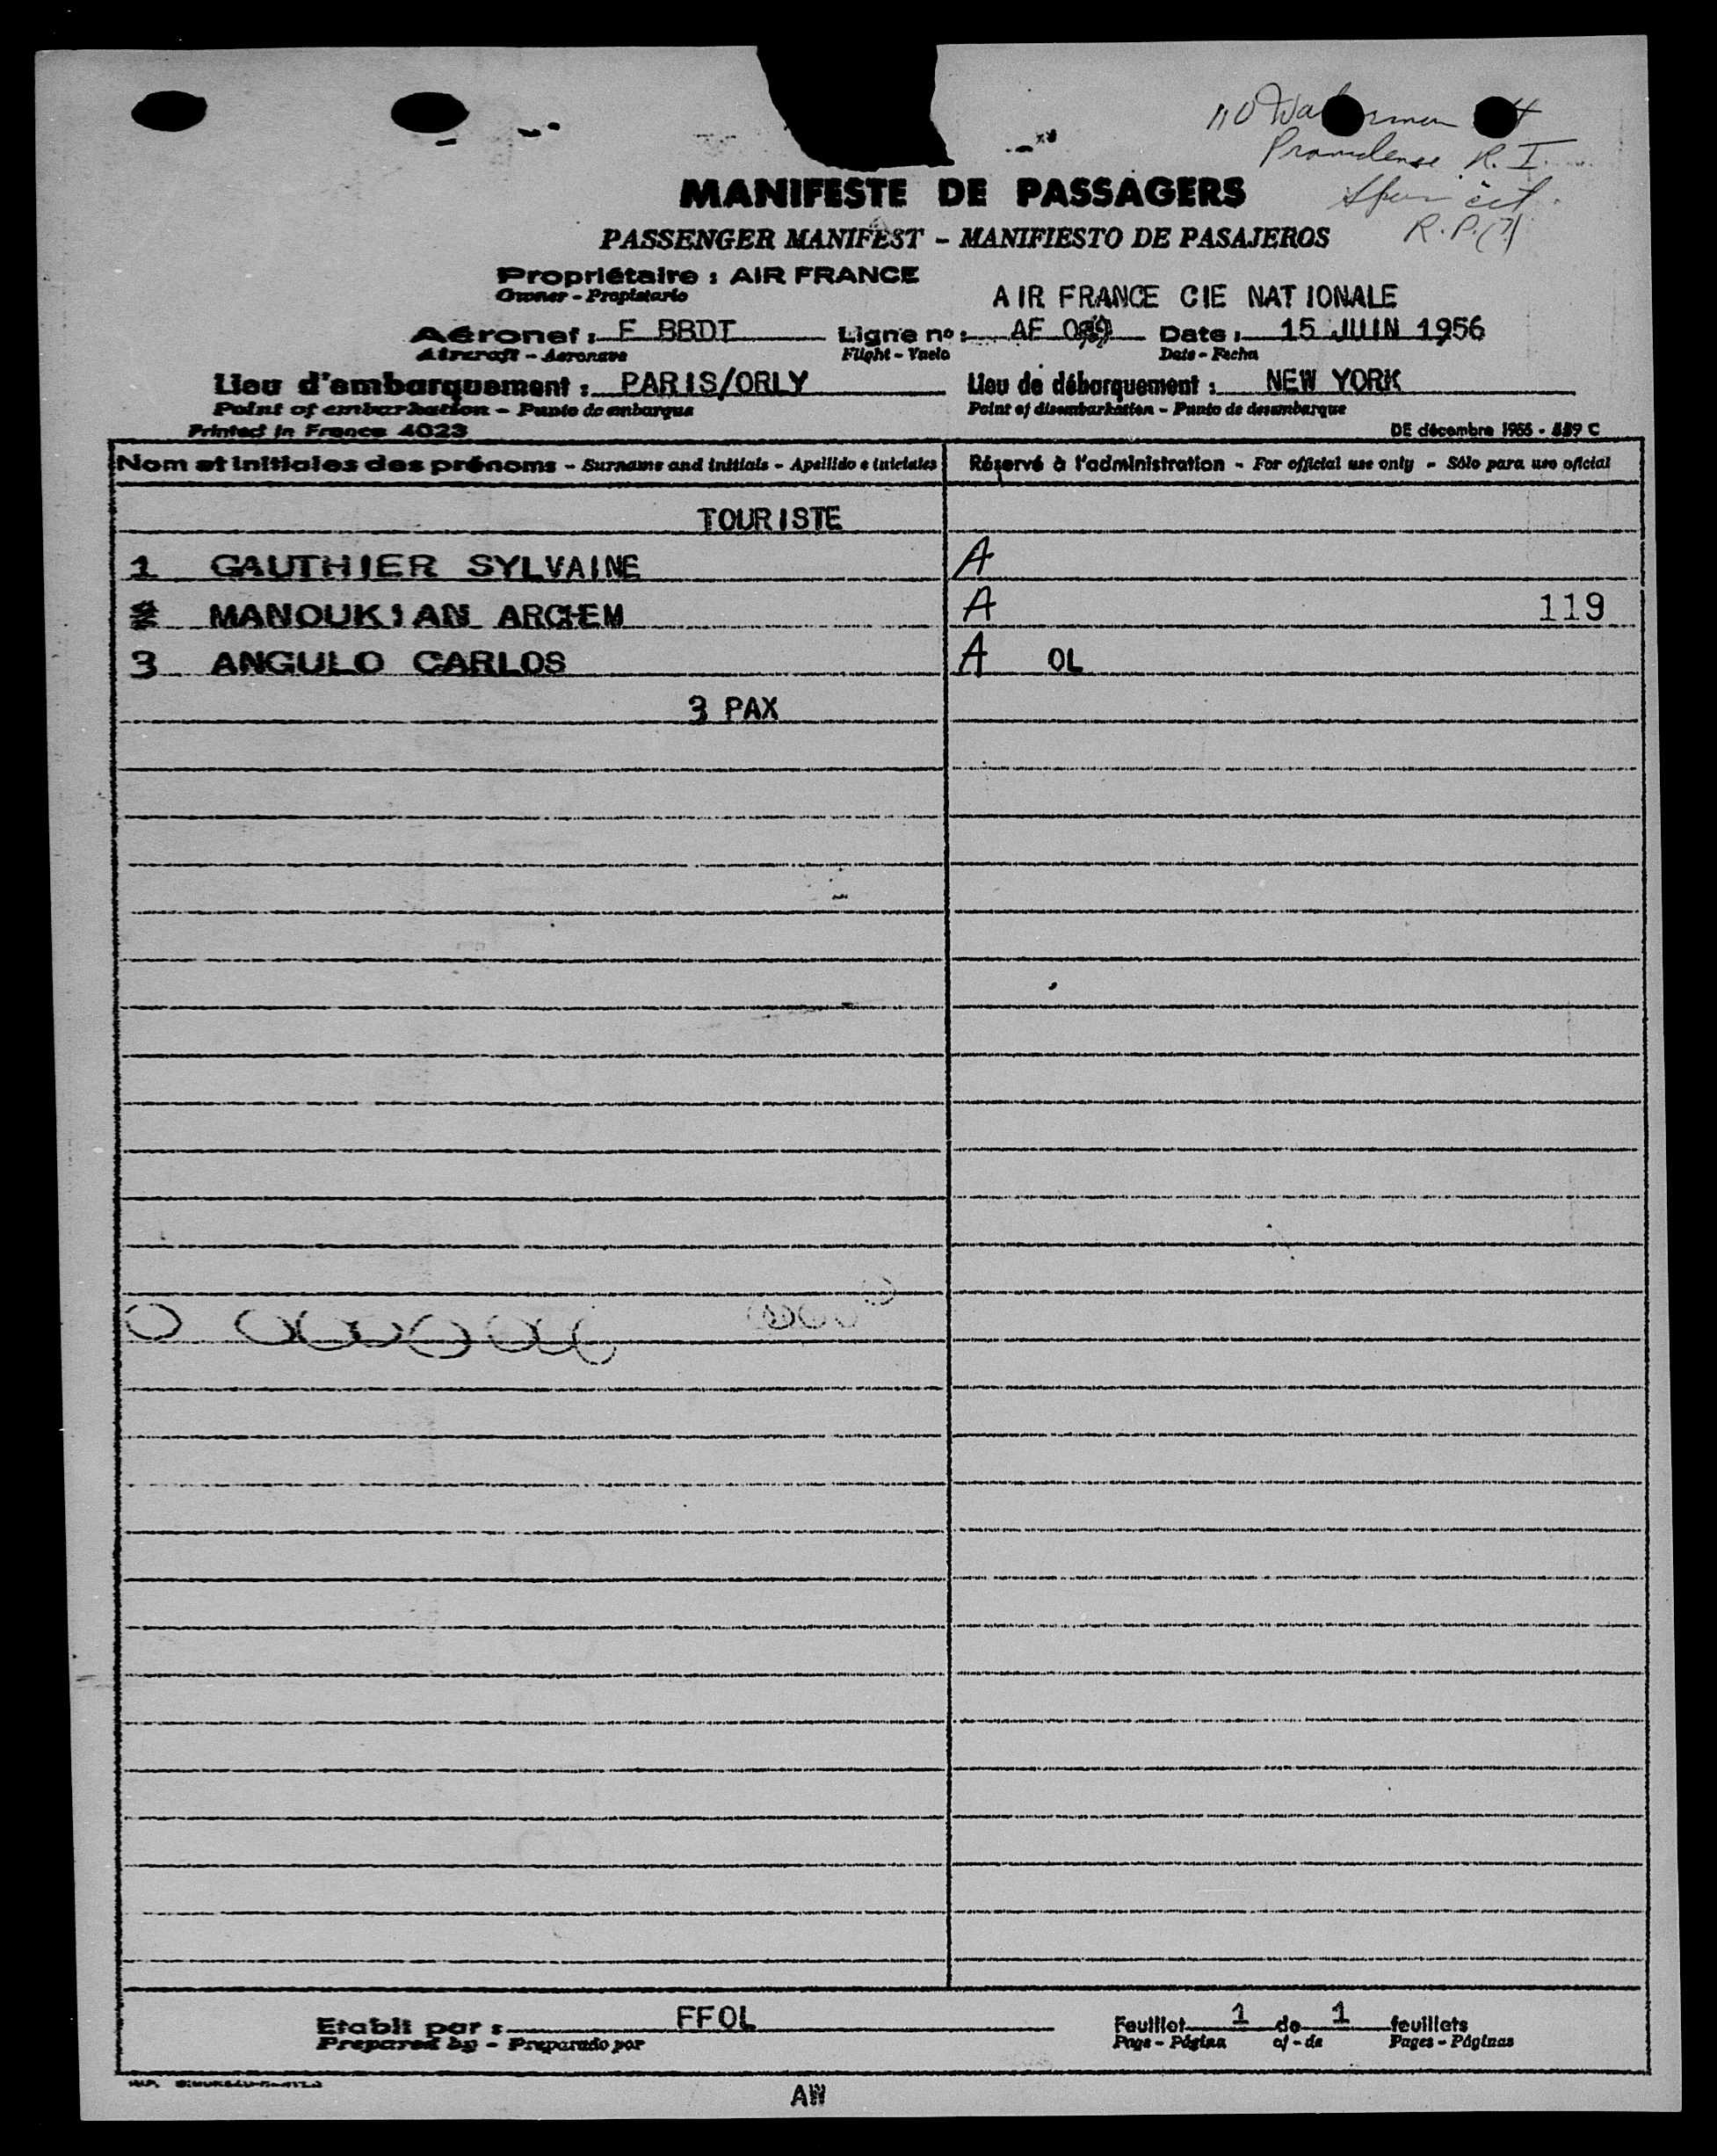 110
Providense R. I.
cit.
R.P.(7)
MANIFESTE DE PASSAGERS
PASSENGER MANIFEST - MANIFIESTO DE PASAJEROS
Propriétaire : AIR FRANCE
Owner - Propietario
AIR FRANCE CIE NATIONALE
Aéronef : F BBDT Ligne nº : AF Date : 15 JUIN 1956
Aircraft - Aeronave Flight - Vuelo Date - Fecha
Lieu d'embarquement : PARIS/ORLY Lieu de débarquement : NEW YORK
Point of embarkation - Punto de embarque Point of disembarkation - Punto de desembarque
Printed in France 4023 DE décembre 1955 - 889 C
Nom et initiales des prénoms - Surname and initials - Apellido e iniciales Réservé à l'administration - For official use only - Sólo para uso oficial
TOURISTE
1 GAUTHIER SYLVAINE A
2 MANOUKIAN ARCHEM A 119
3 ANGULO CARLOS A OL
3 PAX
Etabli par : FFOL Feuillet 1 de 1 feuillets
Prepared by - Preparado por Page - Página of - de Pages - Páginas
AW